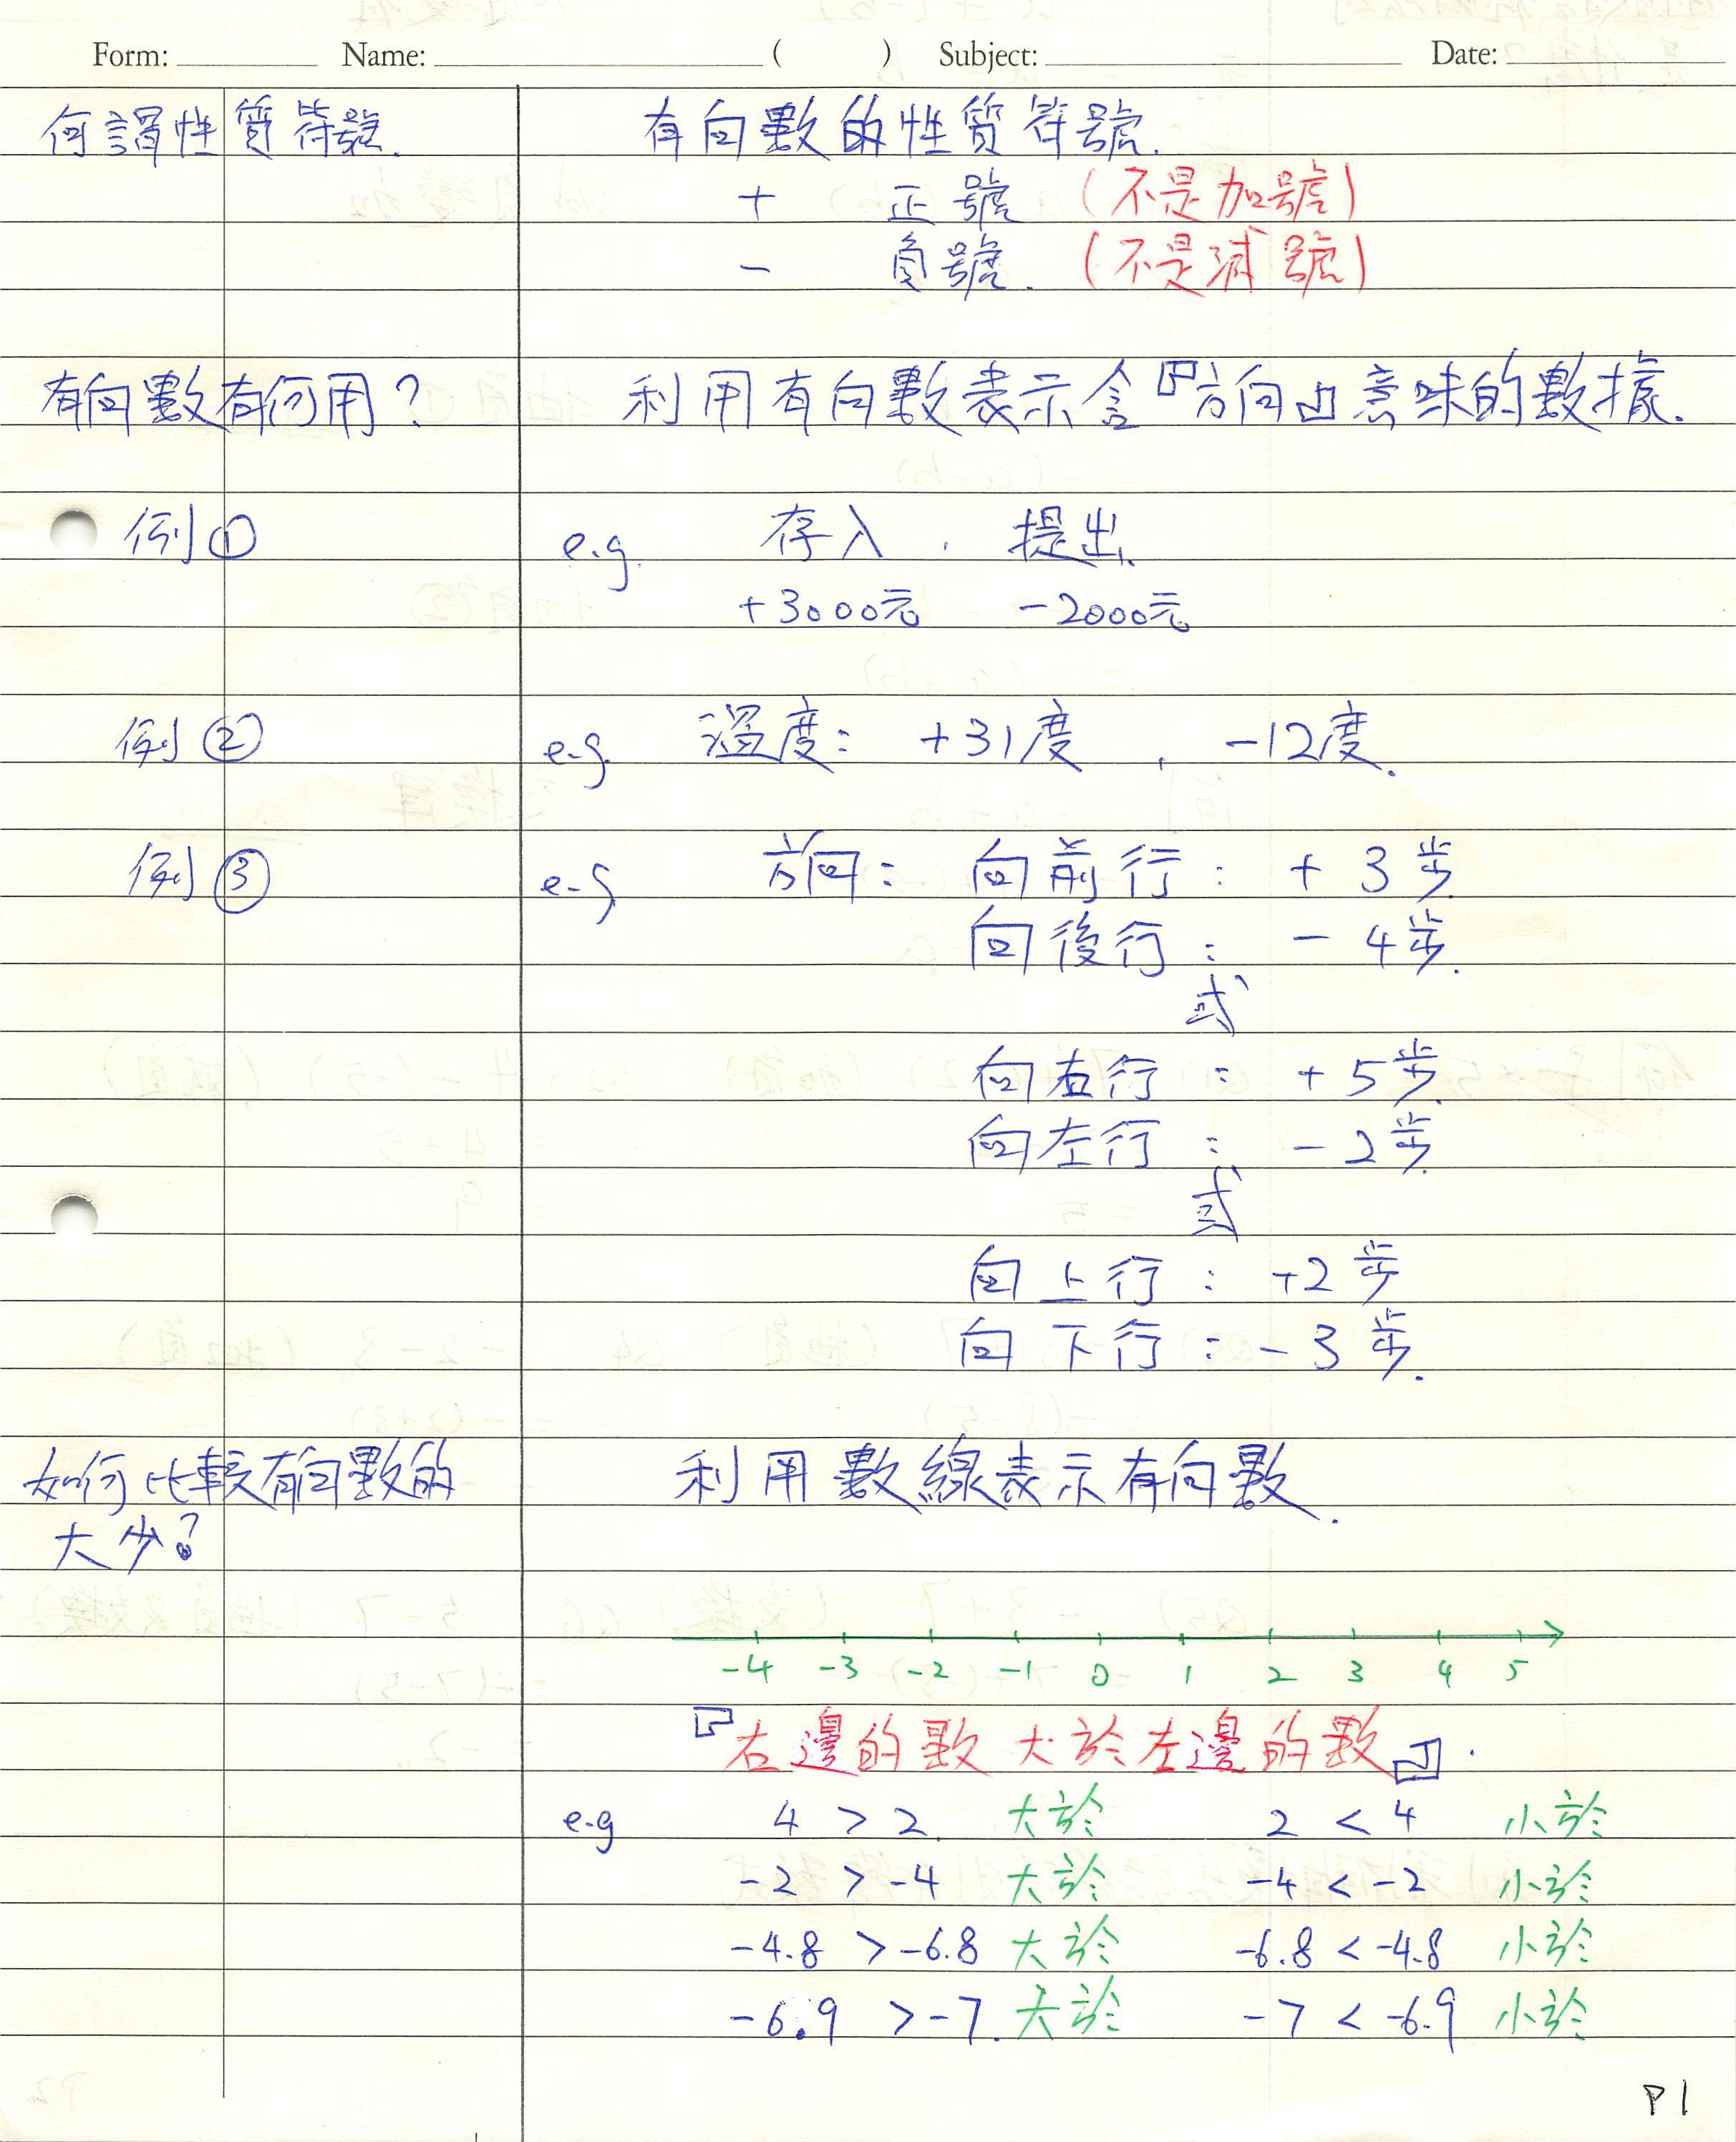 Form: Name: ( ) Subject: Date:
何謂性質符號. 有向數的性質符號.
+ 正號 (不是加號)
- 負號. (不是減號)
有向數有何用? 利用有向數表示含『方向』意味的數據.
例① e.g. 存入 , 提出.
+3000元 -2000元
例② e.g. 溫度: +31度 , -12度.
例③ e.g 方向: 向前行: +3步
向後行: -4步.
或
向右行: +5步.
向左行: -2步.
或
向上行: +2步
向下行: -3步.
如何比較有向數的 利用數線表示有向數.
大少?
-4 -3 -2 -1 0 1 2 3 4 5
『右邊的數大於左邊的數』.
e.g 4 > 2. 大於 2 < 4 小於
-2 > -4 大於 -4 < -2 小於
-4.8 > -6.8 大於 -6.8 < -4.8 小於
-6.9 > -7. 大於 -7 < -6.9 小於
P1